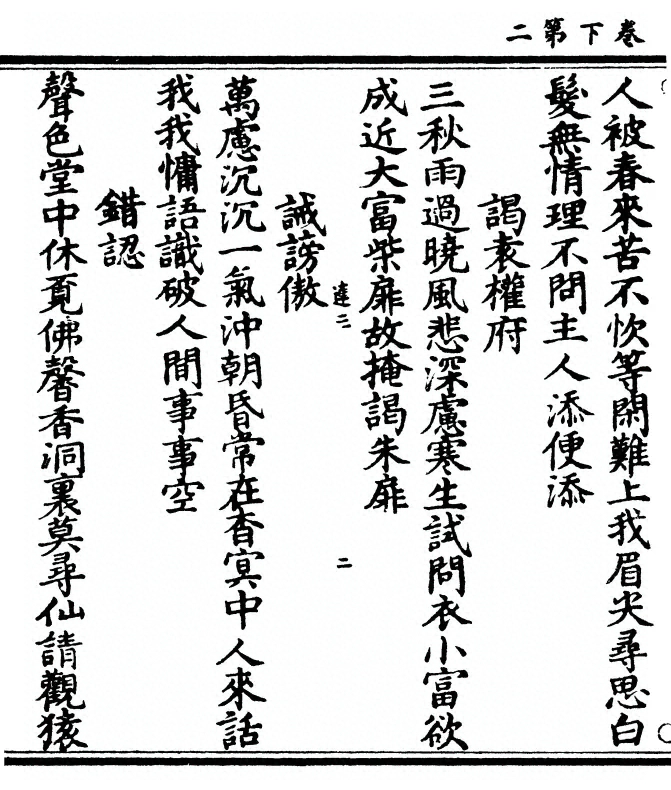 卷下第二
人被春來苦不忺等閑難上我眉尖尋思白
髮無情理不問主人添便添
謁袁權府
三秋雨過曉風悲深慮寒生試問衣小富欲
成近大富柴扉故掩謁朱扉
誡謗傲
達三
二
萬慮沉沉一氣沖朝昏常在杳冥中人來話
我我慵語識破人間事事空
錯認
聲色堂中休覓佛馨香洞裏莫尋仙請觀猿